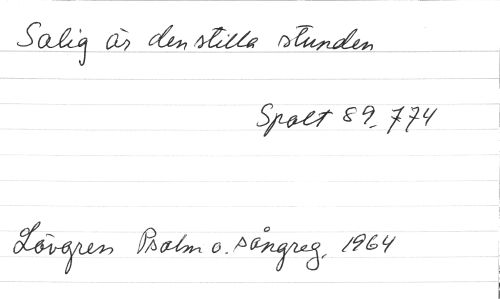 Salig är den stilla stunden
Spalt 89, 774
Lövgren Psalm o. sångreg. 1964